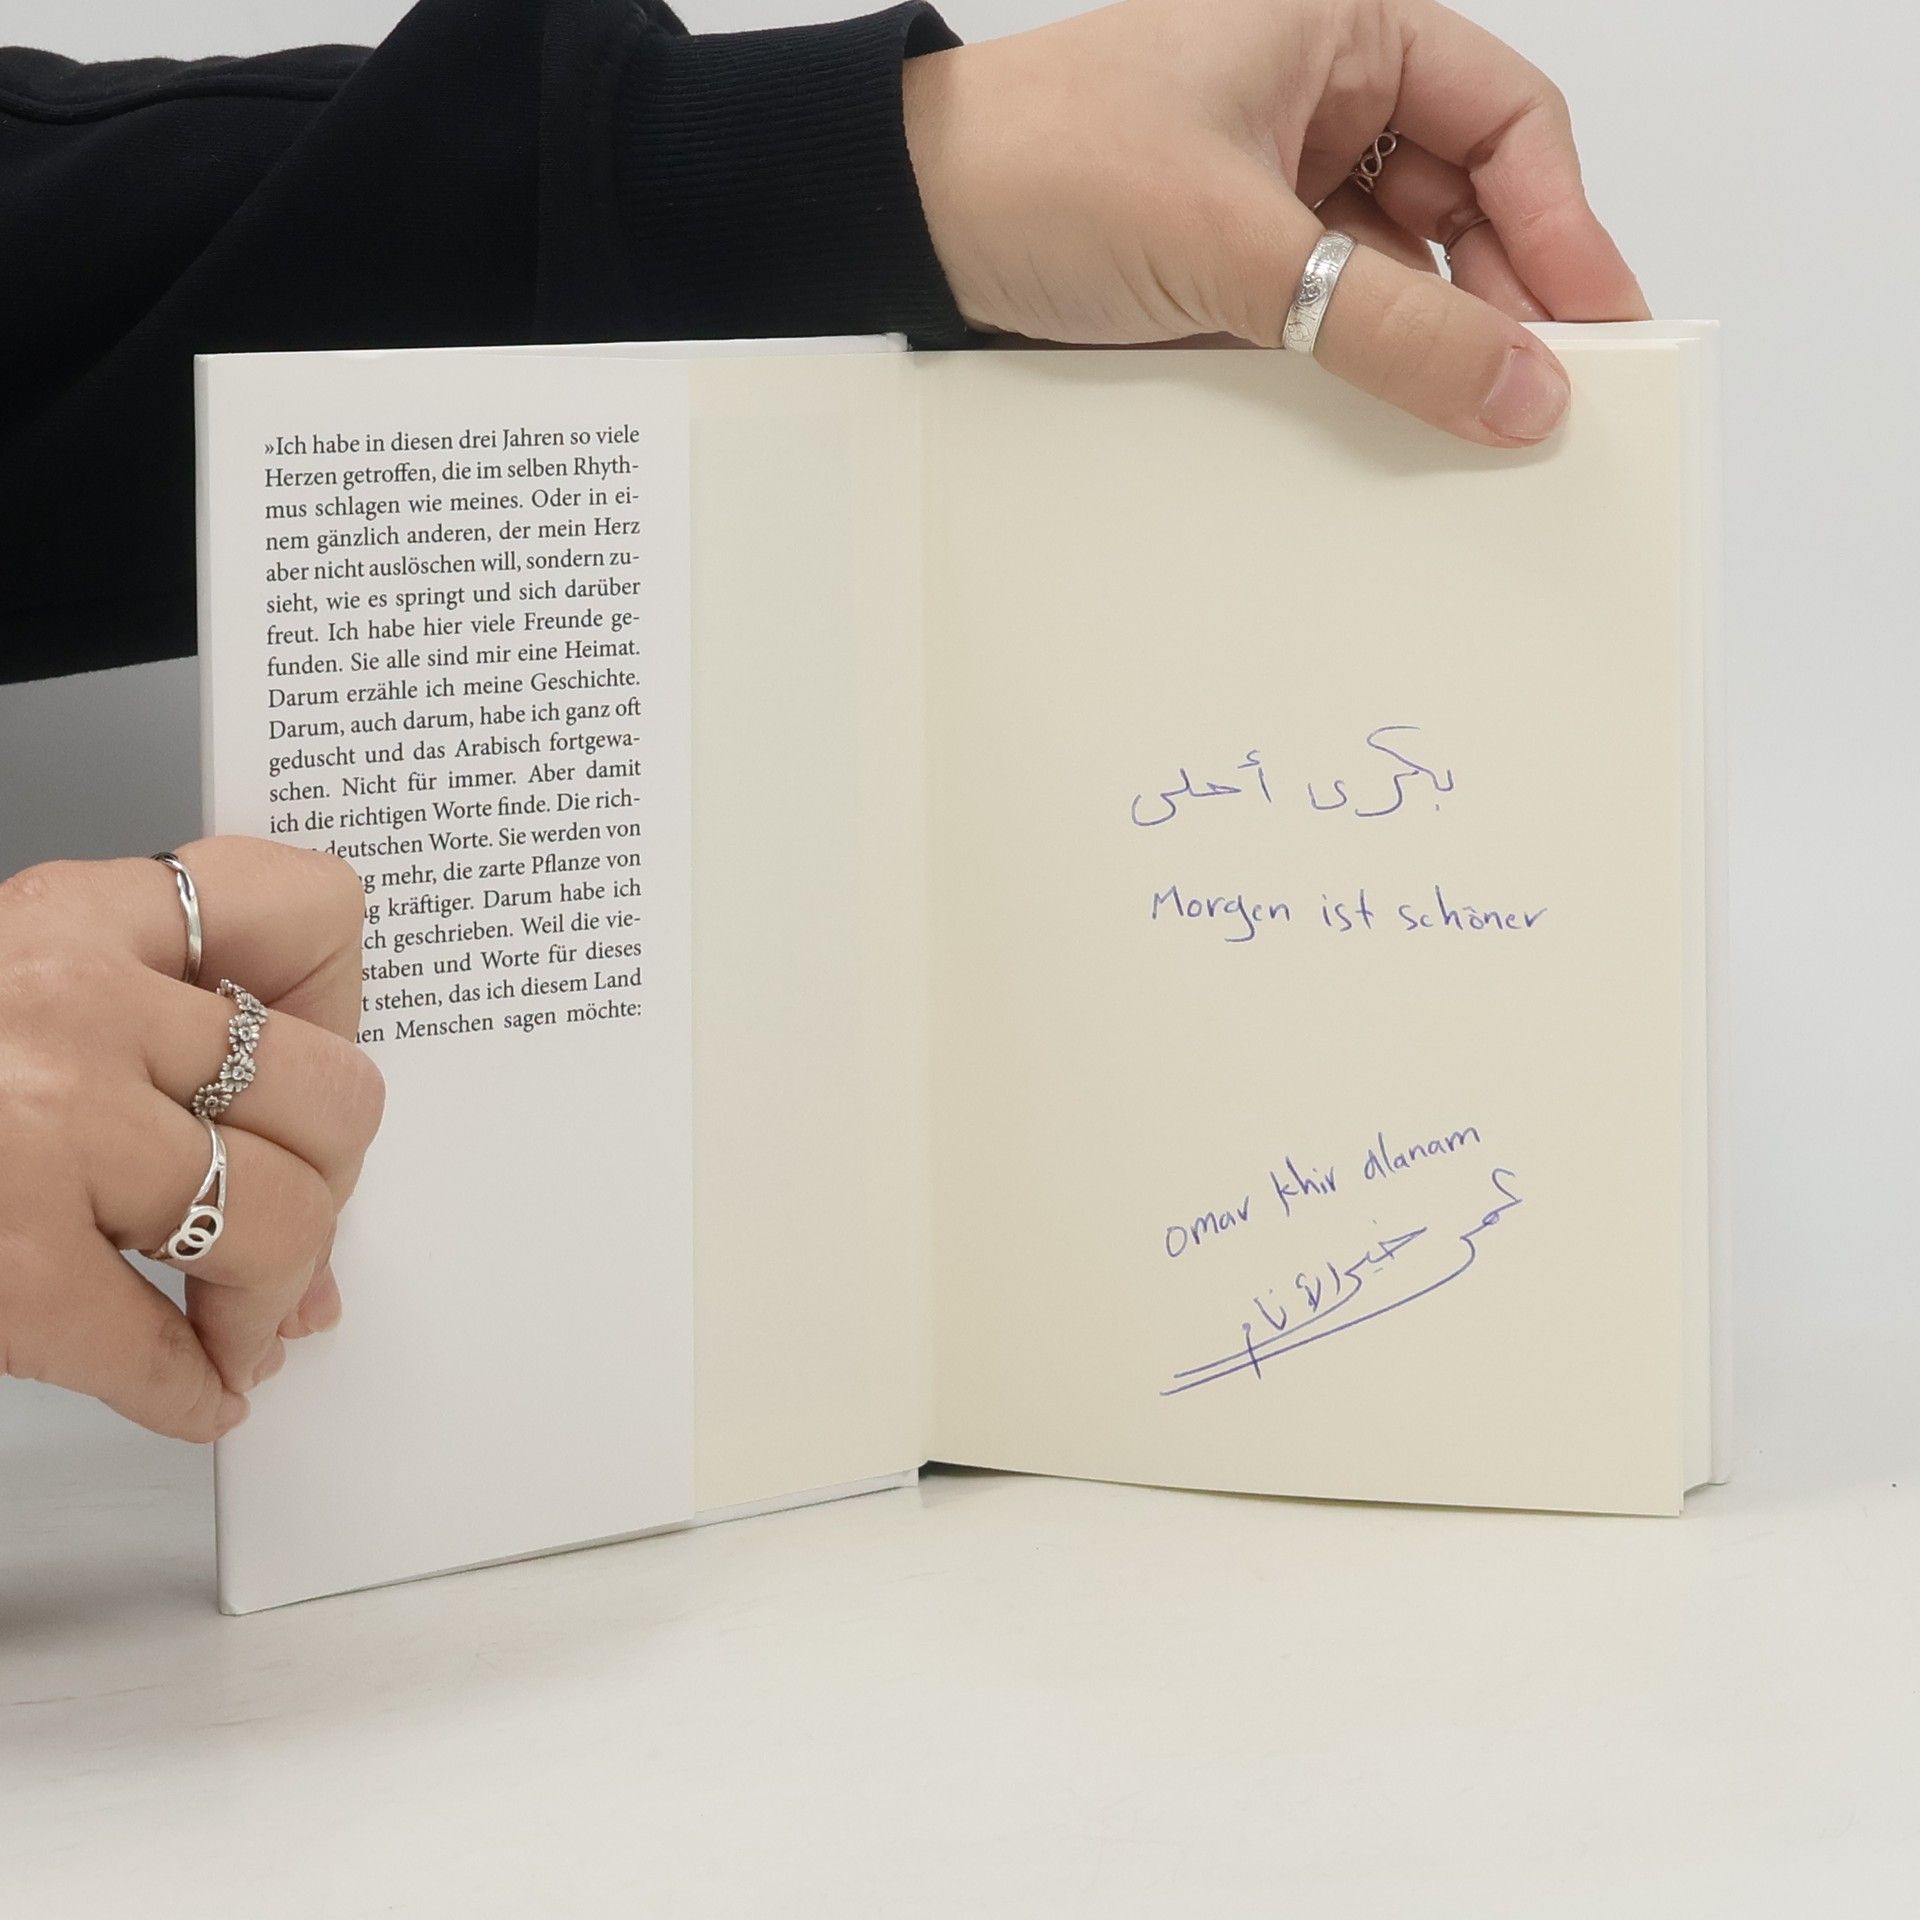 »Ich habe in diesen drei Jahren so viele
Herzen getroffen, die im selben Rhyth-
mus schlagen wie meines. Oder in ei-
nem gänzlich anderen, der mein Herz
aber nicht auslöschen will, sondern zu-
sieht, wie es springt und sich darüber
freut. Ich habe hier viele Freunde ge-
funden. Sie alle sind mir eine Heimat.
Darum erzähle ich meine Geschichte.
Darum, auch darum, habe ich ganz oft
geduscht und das Arabisch fortgewa-
schen. Nicht für immer. Aber damit
ich die richtigen Worte finde. Die rich-
deutschen Worte. Sie werden von
mehr, die zarte Pflanze von
kräftiger. Darum habe ich
geschrieben. Weil die vie-
staben und Worte für dieses
stehen, das ich diesem Land
Menschen sagen möchte:
بكرى أحلى
Morgen ist schöner
Omar Khir Alanam
عمر خير الأنام